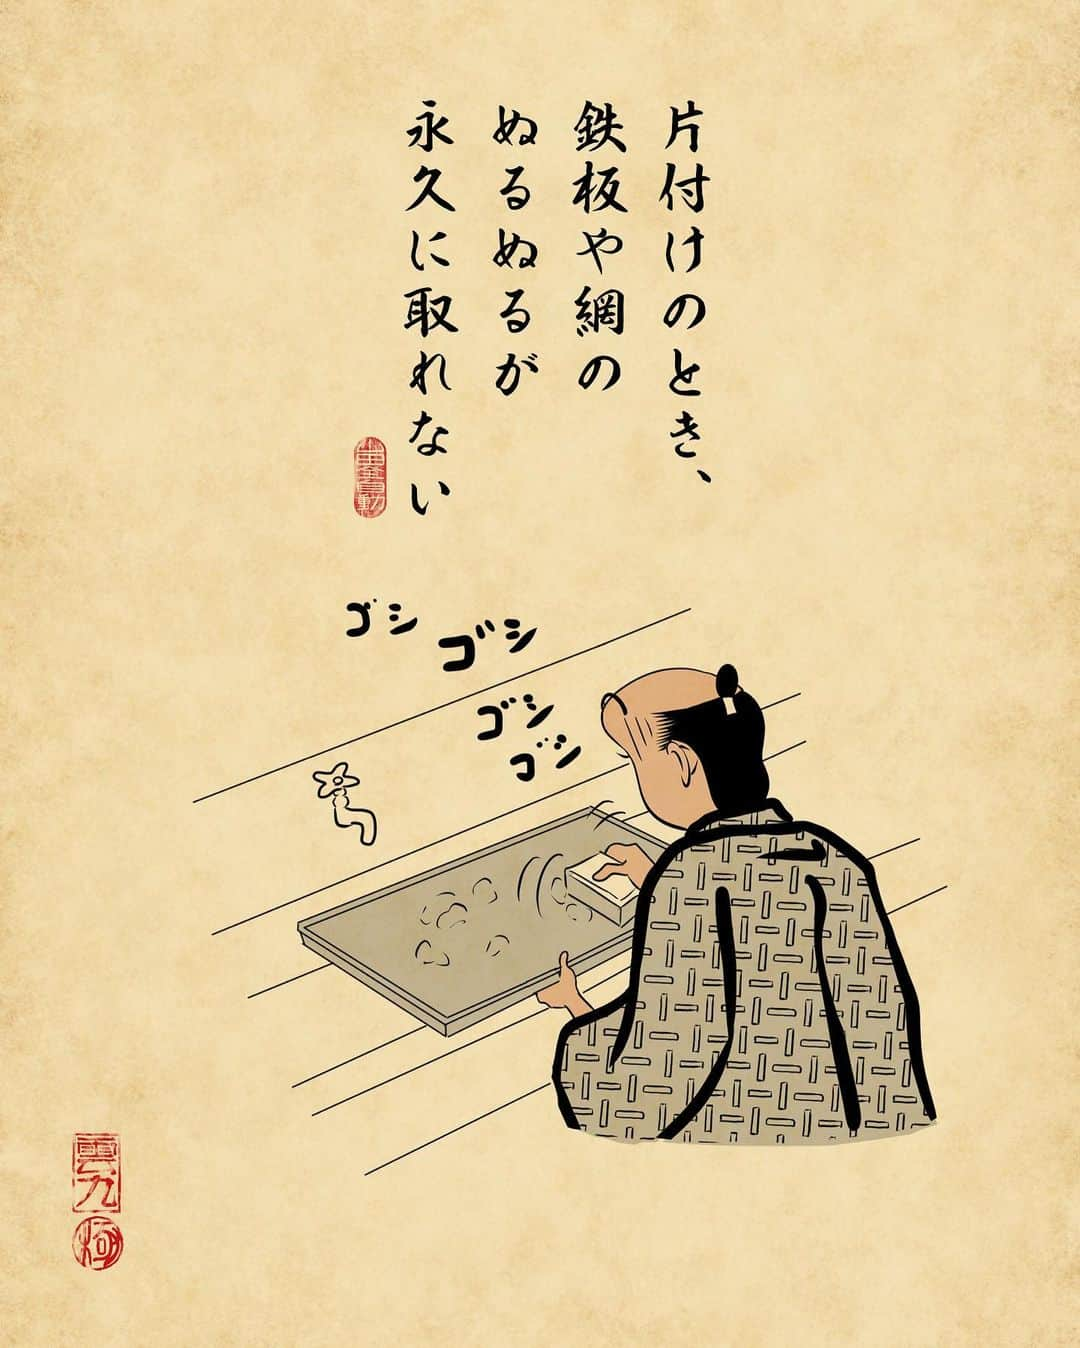 片付けのとき、
鉄板や網の
ぬるぬるが
永久に取れない
ゴシ
ゴシ
ゴシ
ゴシ